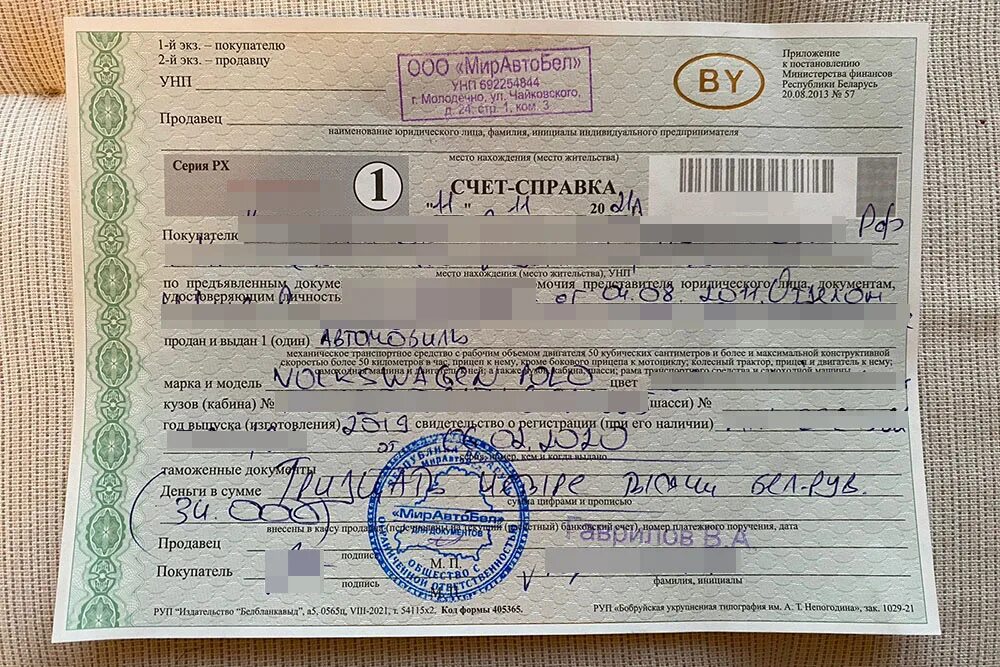 1-й экз. – покупателю
2-й экз. – продавцу
УНП
ООО «МирАвтоБел»
УНП 692254844
г. Молодечно, ул. Чайковского,
д. 24, стр. 1, ком. 3
BY
Приложение
к постановлению
Министерства финансов
Республики Беларусь
20.08.2013 № 57
Продавец
наименование юридического лица, фамилия, инициалы индивидуального предпринимателя
место нахождения (место жительства)
Серия РХ
1
СЧЕТ-СПРАВКА
"11" 11 2021
Покупателю
РФ
место нахождения (место жительства), УНП
по предъявленным докуме
мочия представителя юридического лица, документам,
удостоверяющим личность
от 04.08.2011
продан и выдан 1 (один) Автомобиль
механическое транспортное средство с рабочим объемом двигателя 50 кубических сантиметров и более и максимальной конструктивной
скоростью более 50 километров в час, прицеп к нему, кроме бокового прицепа к мотоциклу; колесный трактор, прицеп к нему;
марка и модель VOLKSWAGEN POLO цвет
кузов (кабина) №
(шасси) №
год выпуска (изготовления) 2019 свидетельство о регистрации (при его наличии)
от 06.02.2020
номер, кем и когда выдано
таможенные документы
Деньги в сумме Тридцать четыре тысячи бел.руб.
сумма цифрами и прописью
(34.000)
внесены в кассу
банковский счет), номер платежного поручения, дата
Продавец
подпись
М. П.
Гаврилов В.А
Покупатель
подпись
М. П.
фамилия, инициалы
«МирАвтоБел»
ДЛЯ ДОКУМЕНТОВ
ОБЩЕСТВО С ОГРАНИЧЕННОЙ ОТВЕТСТВЕННОСТЬЮ
РУП "Издательство "Белбланкавыд", а5, 0565ц, VIII-2021, т. 54115х2, Код формы 405365.
РУП «Бобруйская укрупненная типография им. А. Т. Непогодина», зак. 1029-21